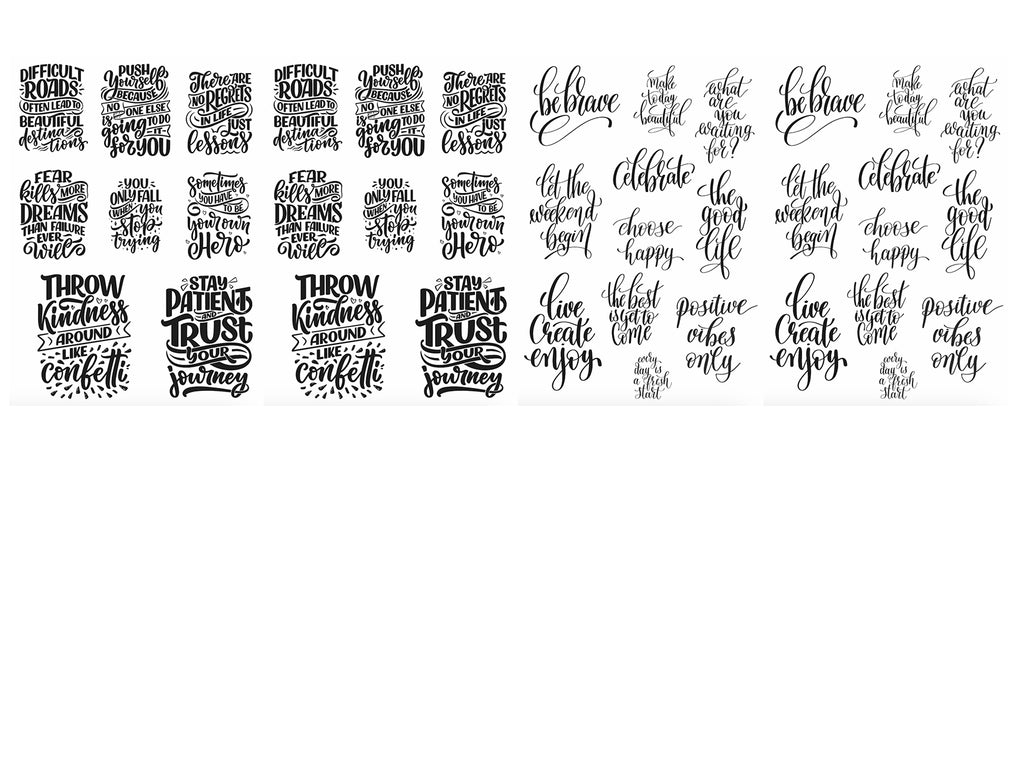 DIFFICULT
ROADS
OFTEN LEAD TO
BEAUTIFUL
destina
tions
PUSH
Yourself
BECAUSE
NO ONE ELSE
is going TO DO
IT
for YOU
There ARE
NO REGRETS
IN LIFE
JUST
lessons
FEAR
kills MORE
DREAMS
THAN FAILURE
EVER
Will
YOU
ONLY FALL
WHEN you
stop
trying
Sometimes
YOU HAVE
TO BE
your own
Hero
THROW
Kindness
AROUND
LIKE
confetti
STAY
PATIENT
AND
TRUST
YOUR
journey
DIFFICULT
ROADS
OFTEN LEAD TO
BEAUTIFUL
destina
tions
PUSH
Yourself
BECAUSE
NO ONE ELSE
is going TO DO
IT
for YOU
There ARE
NO REGRETS
IN LIFE
JUST
lessons
FEAR
kills MORE
DREAMS
THAN FAILURE
EVER
Will
YOU
ONLY FALL
WHEN you
stop
trying
Sometimes
YOU HAVE
TO BE
your own
Hero
THROW
Kindness
AROUND
LIKE
confetti
STAY
PATIENT
AND
TRUST
YOUR
journey
be brave
make
today
beautiful
what
are
you
waiting
for?
let the
weekend
begin
Celebrate
choose
happy
the
good
life
live
Create
enjoy
the best
is yet to
come
positive
vibes
only
every
day is
a fresh
start
be brave
make
today
beautiful
what
are
you
waiting
for?
let the
weekend
begin
Celebrate
choose
happy
the
good
life
live
Create
enjoy
the best
is yet to
come
positive
vibes
only
every
day is
a fresh
start